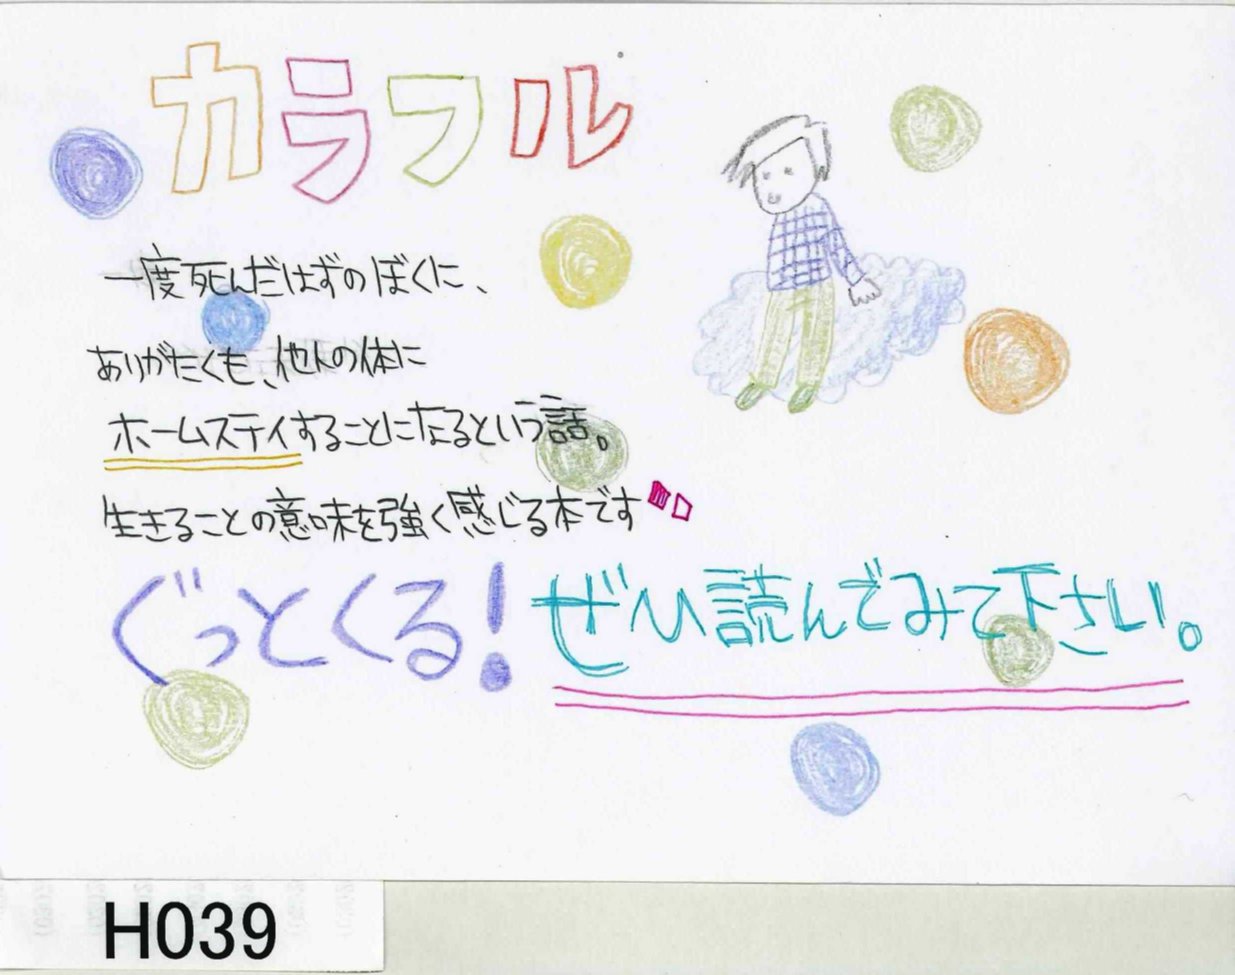 カラフル
一度死んだはずのぼくに、
ありがたくも、他人の体に
ホームステイすることになるという話。
生きることの意味を強く感じる本です
ぐっとくる！ ぜひ読んでみて下さい。
H039